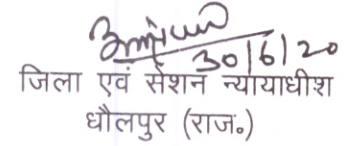 30/6/20
जिला एवं सेशन न्यायाधीश
धौलपुर (राज॰)